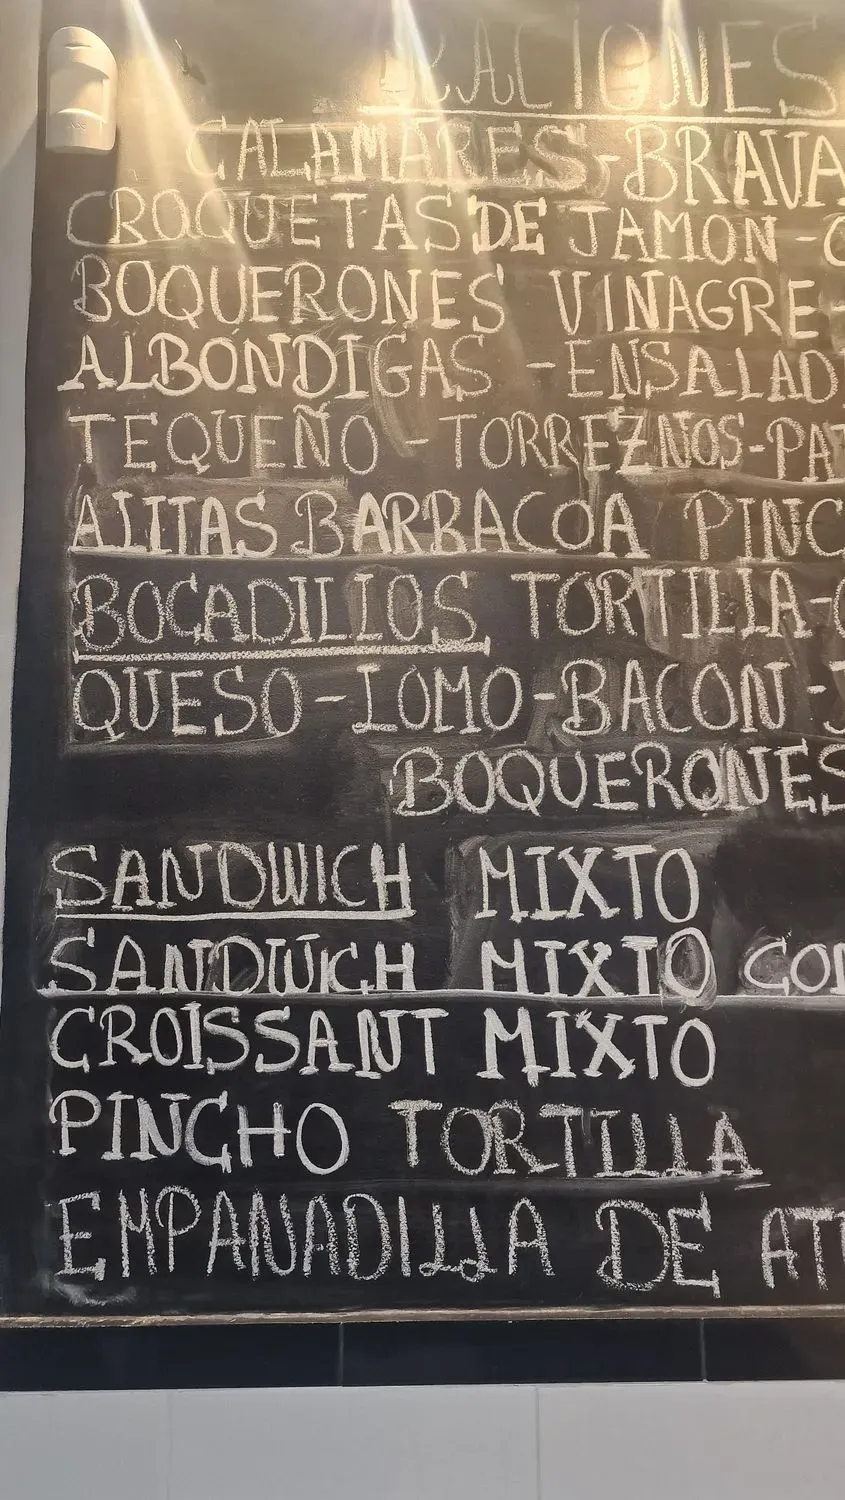 RACIONES
CALAMARES-BRAVA
CROQUETAS DE JAMON -C
BOQUERONES VINAGRE-
ALBÓNDIGAS -ENSALAD
TEQUEÑO -TORREZNOS-PA
ALITAS BARBACOA PINC
BOCADILLOS TORTILLA-
QUESO-LOMO-BACON-J
BOQUERONES
SANDWICH MIXTO
SANDWICH MIXTO CON
CROISSANT MIXTO
PINCHO TORTILLA
EMPANADILLA DE AT